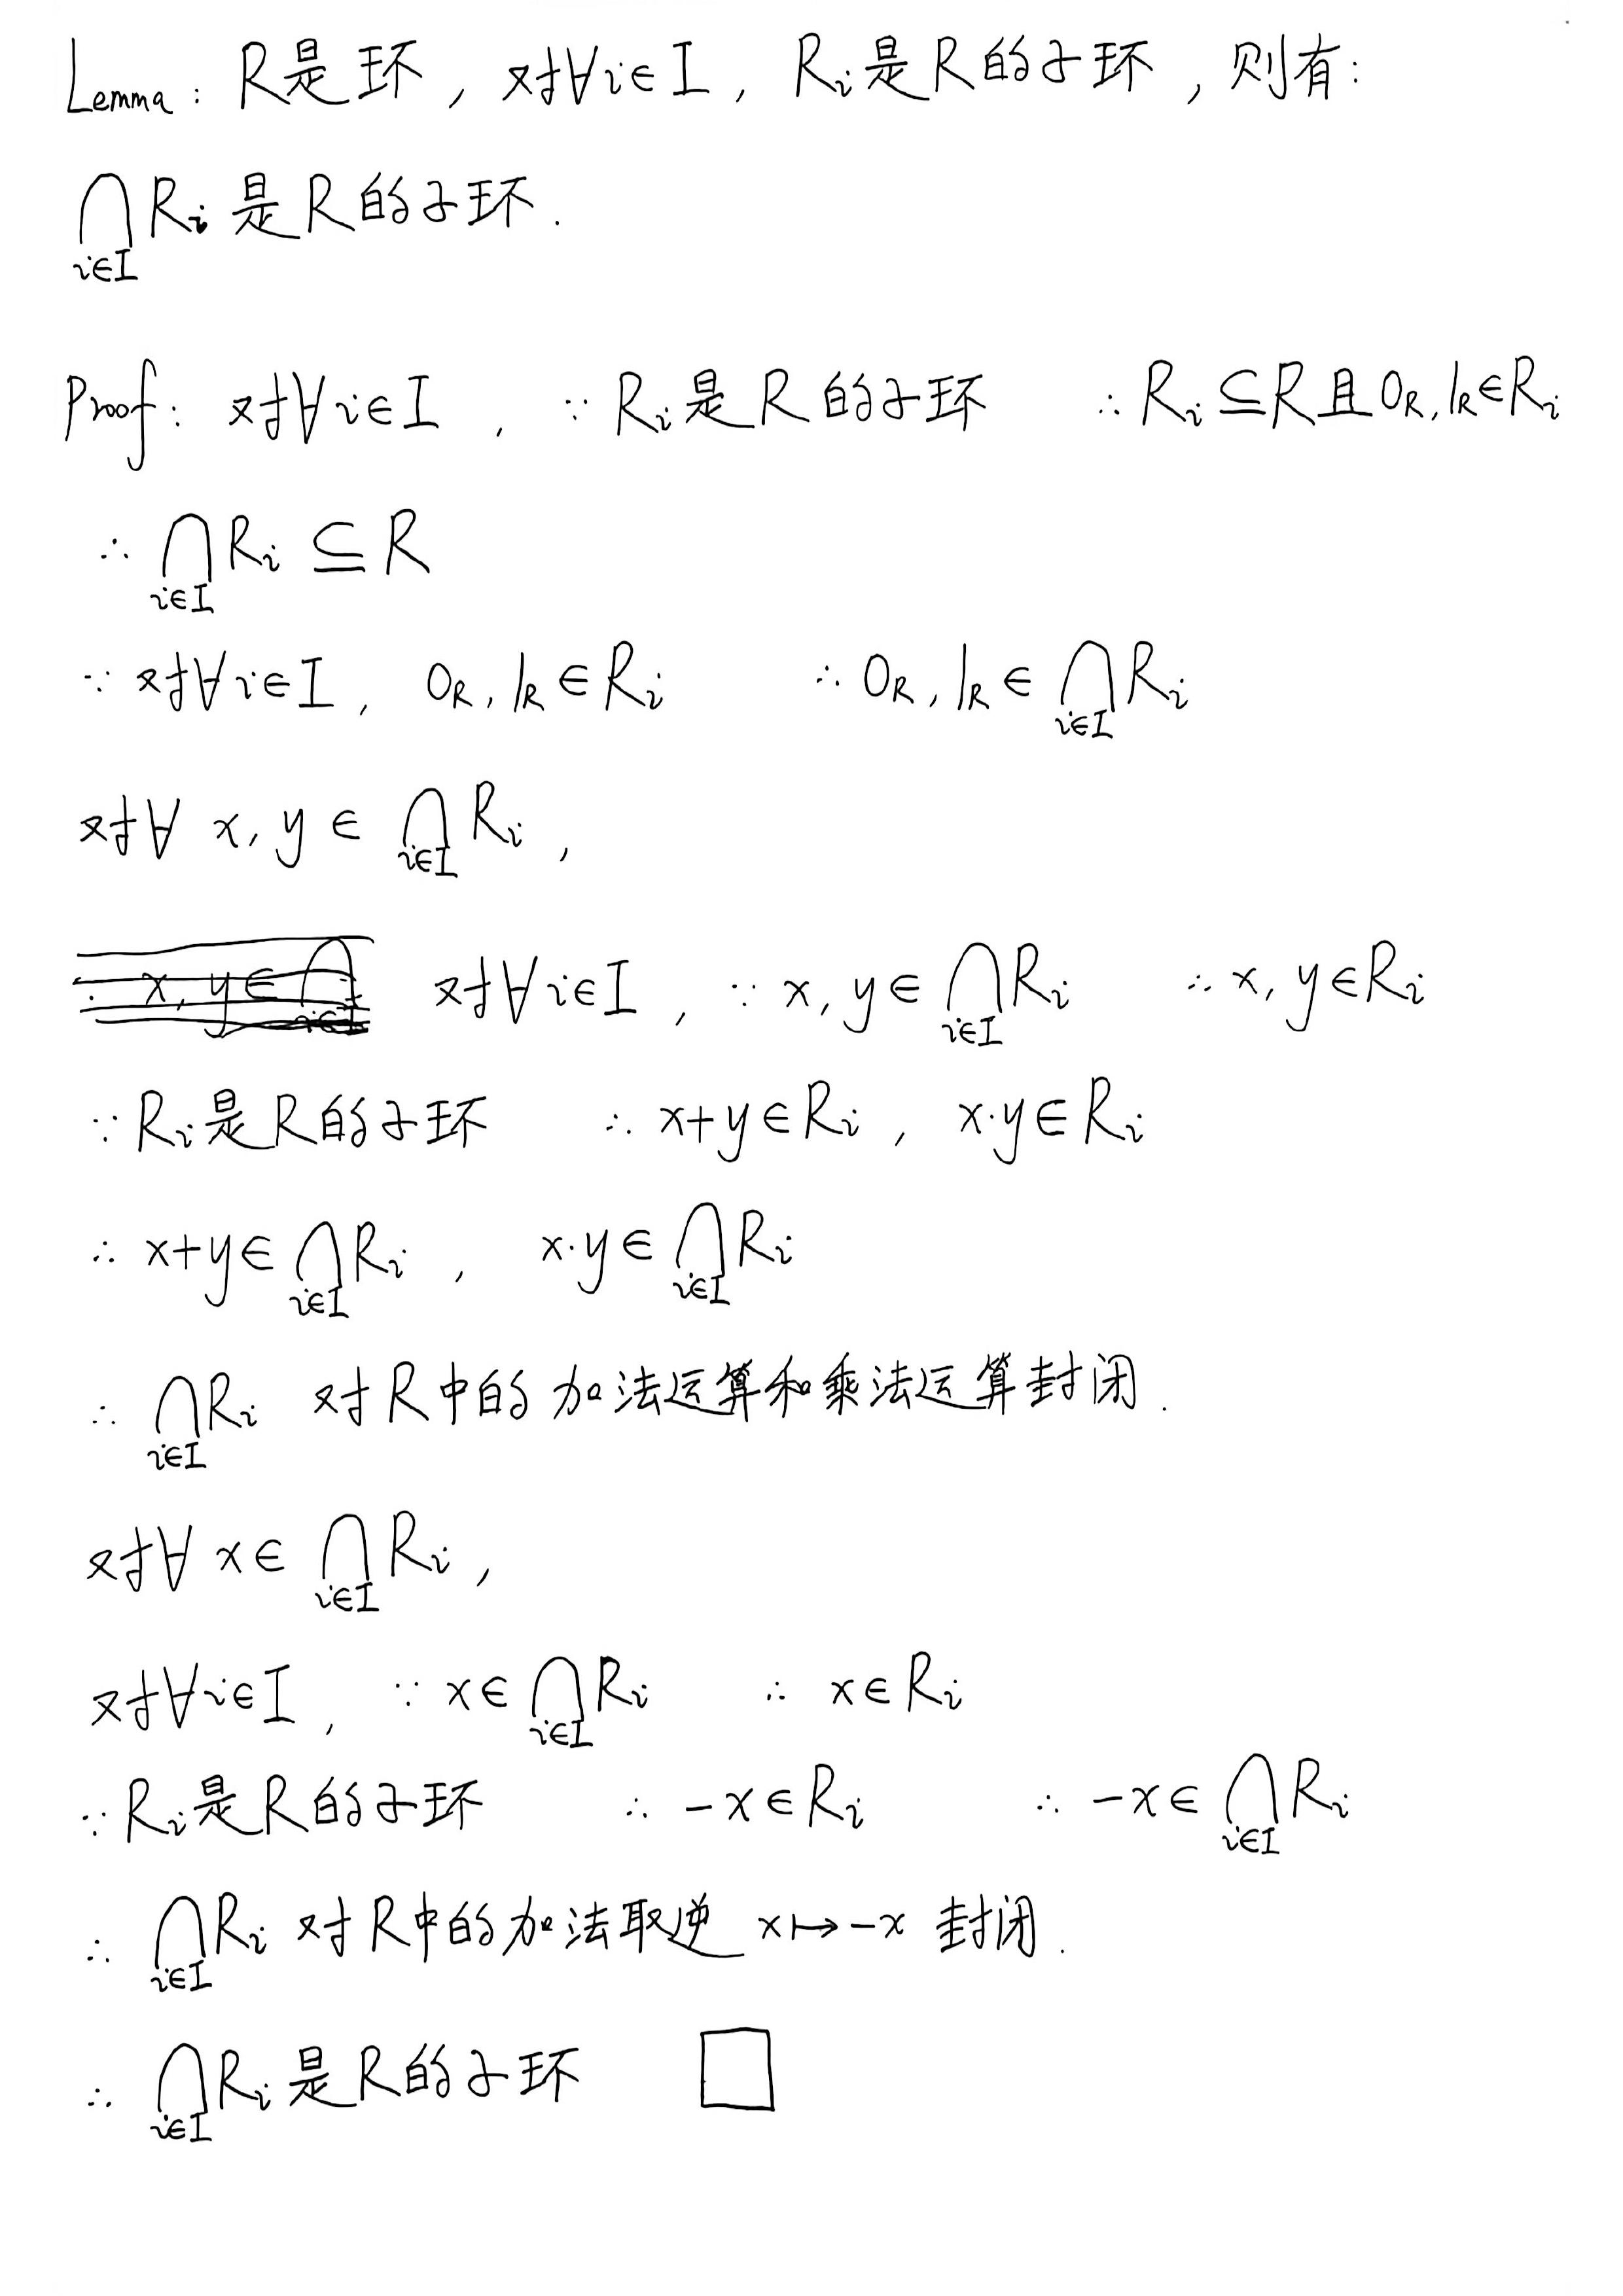 Lemma: R是环, 对∀i∈I, Rᵢ是R的子环, 则有:
⋂_{i∈I} Rᵢ 是R的子环.
Proof: 对∀i∈I, ∵ Rᵢ是R的子环 ∴ Rᵢ⊆R且0_R, 1_R∈Rᵢ
∴ ⋂_{i∈I} Rᵢ ⊆ R
∵ 对∀i∈I, 0_R, 1_R∈Rᵢ ∴ 0_R, 1_R∈ ⋂_{i∈I} Rᵢ
对∀ x, y∈ ⋂_{i∈I} Rᵢ,
对∀i∈I, ∵ x, y∈ ⋂_{i∈I} Rᵢ ∴ x, y∈Rᵢ
∵ Rᵢ是R的子环 ∴ x+y∈Rᵢ, x·y∈Rᵢ
∴ x+y∈ ⋂_{i∈I} Rᵢ, x·y∈ ⋂_{i∈I} Rᵢ
∴ ⋂_{i∈I} Rᵢ 对R中的加法运算和乘法运算封闭.
对∀ x∈ ⋂_{i∈I} Rᵢ,
对∀i∈I, ∵ x∈ ⋂_{i∈I} Rᵢ ∴ x∈Rᵢ
∵ Rᵢ是R的子环 ∴ -x∈Rᵢ ∴ -x∈ ⋂_{i∈I} Rᵢ
∴ ⋂_{i∈I} Rᵢ 对R中的加法取逆 x↦-x 封闭.
∴ ⋂_{i∈I} Rᵢ是R的子环 □